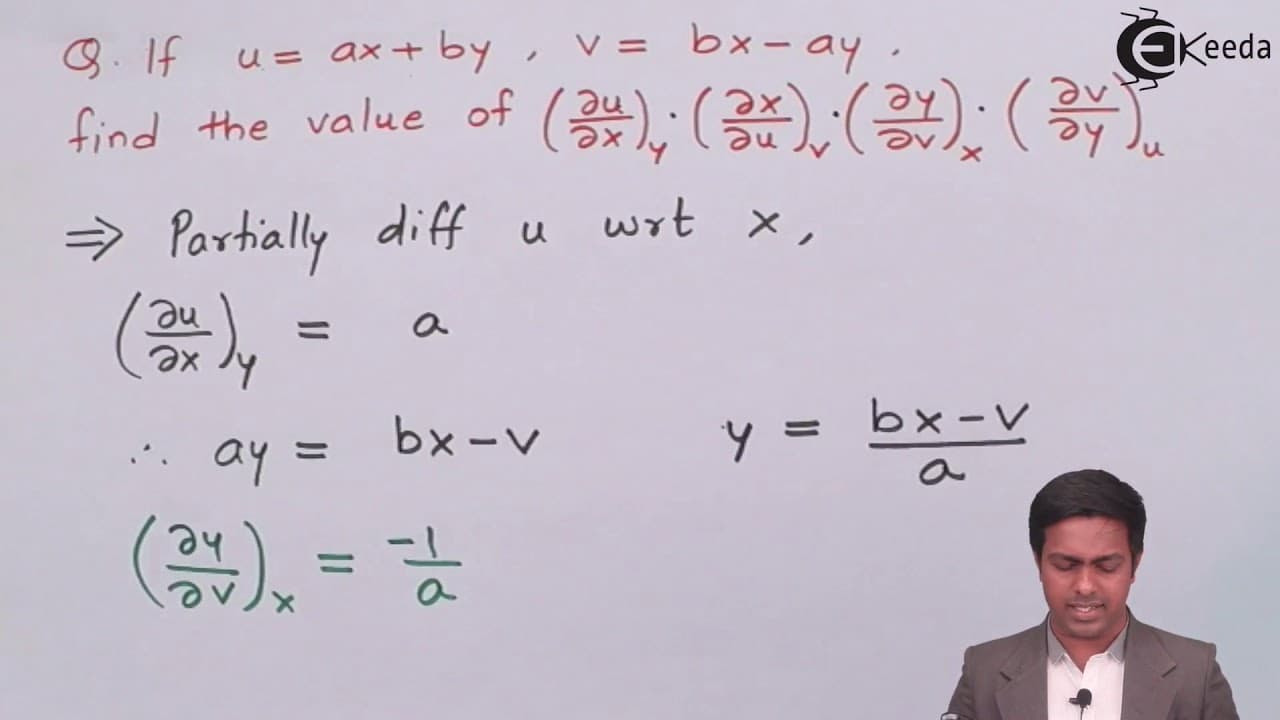 Keeda
Q. If u = ax + by , v = bx - ay .
find the value of (∂u/∂x)_y · (∂x/∂u)_v · (∂y/∂v)_x · (∂v/∂y)_u
⇒ Partially diff u wrt x,
(∂u/∂x)_y = a
∴ ay = bx - v y = (bx - v)/a
(∂y/∂v)_x = -1/a